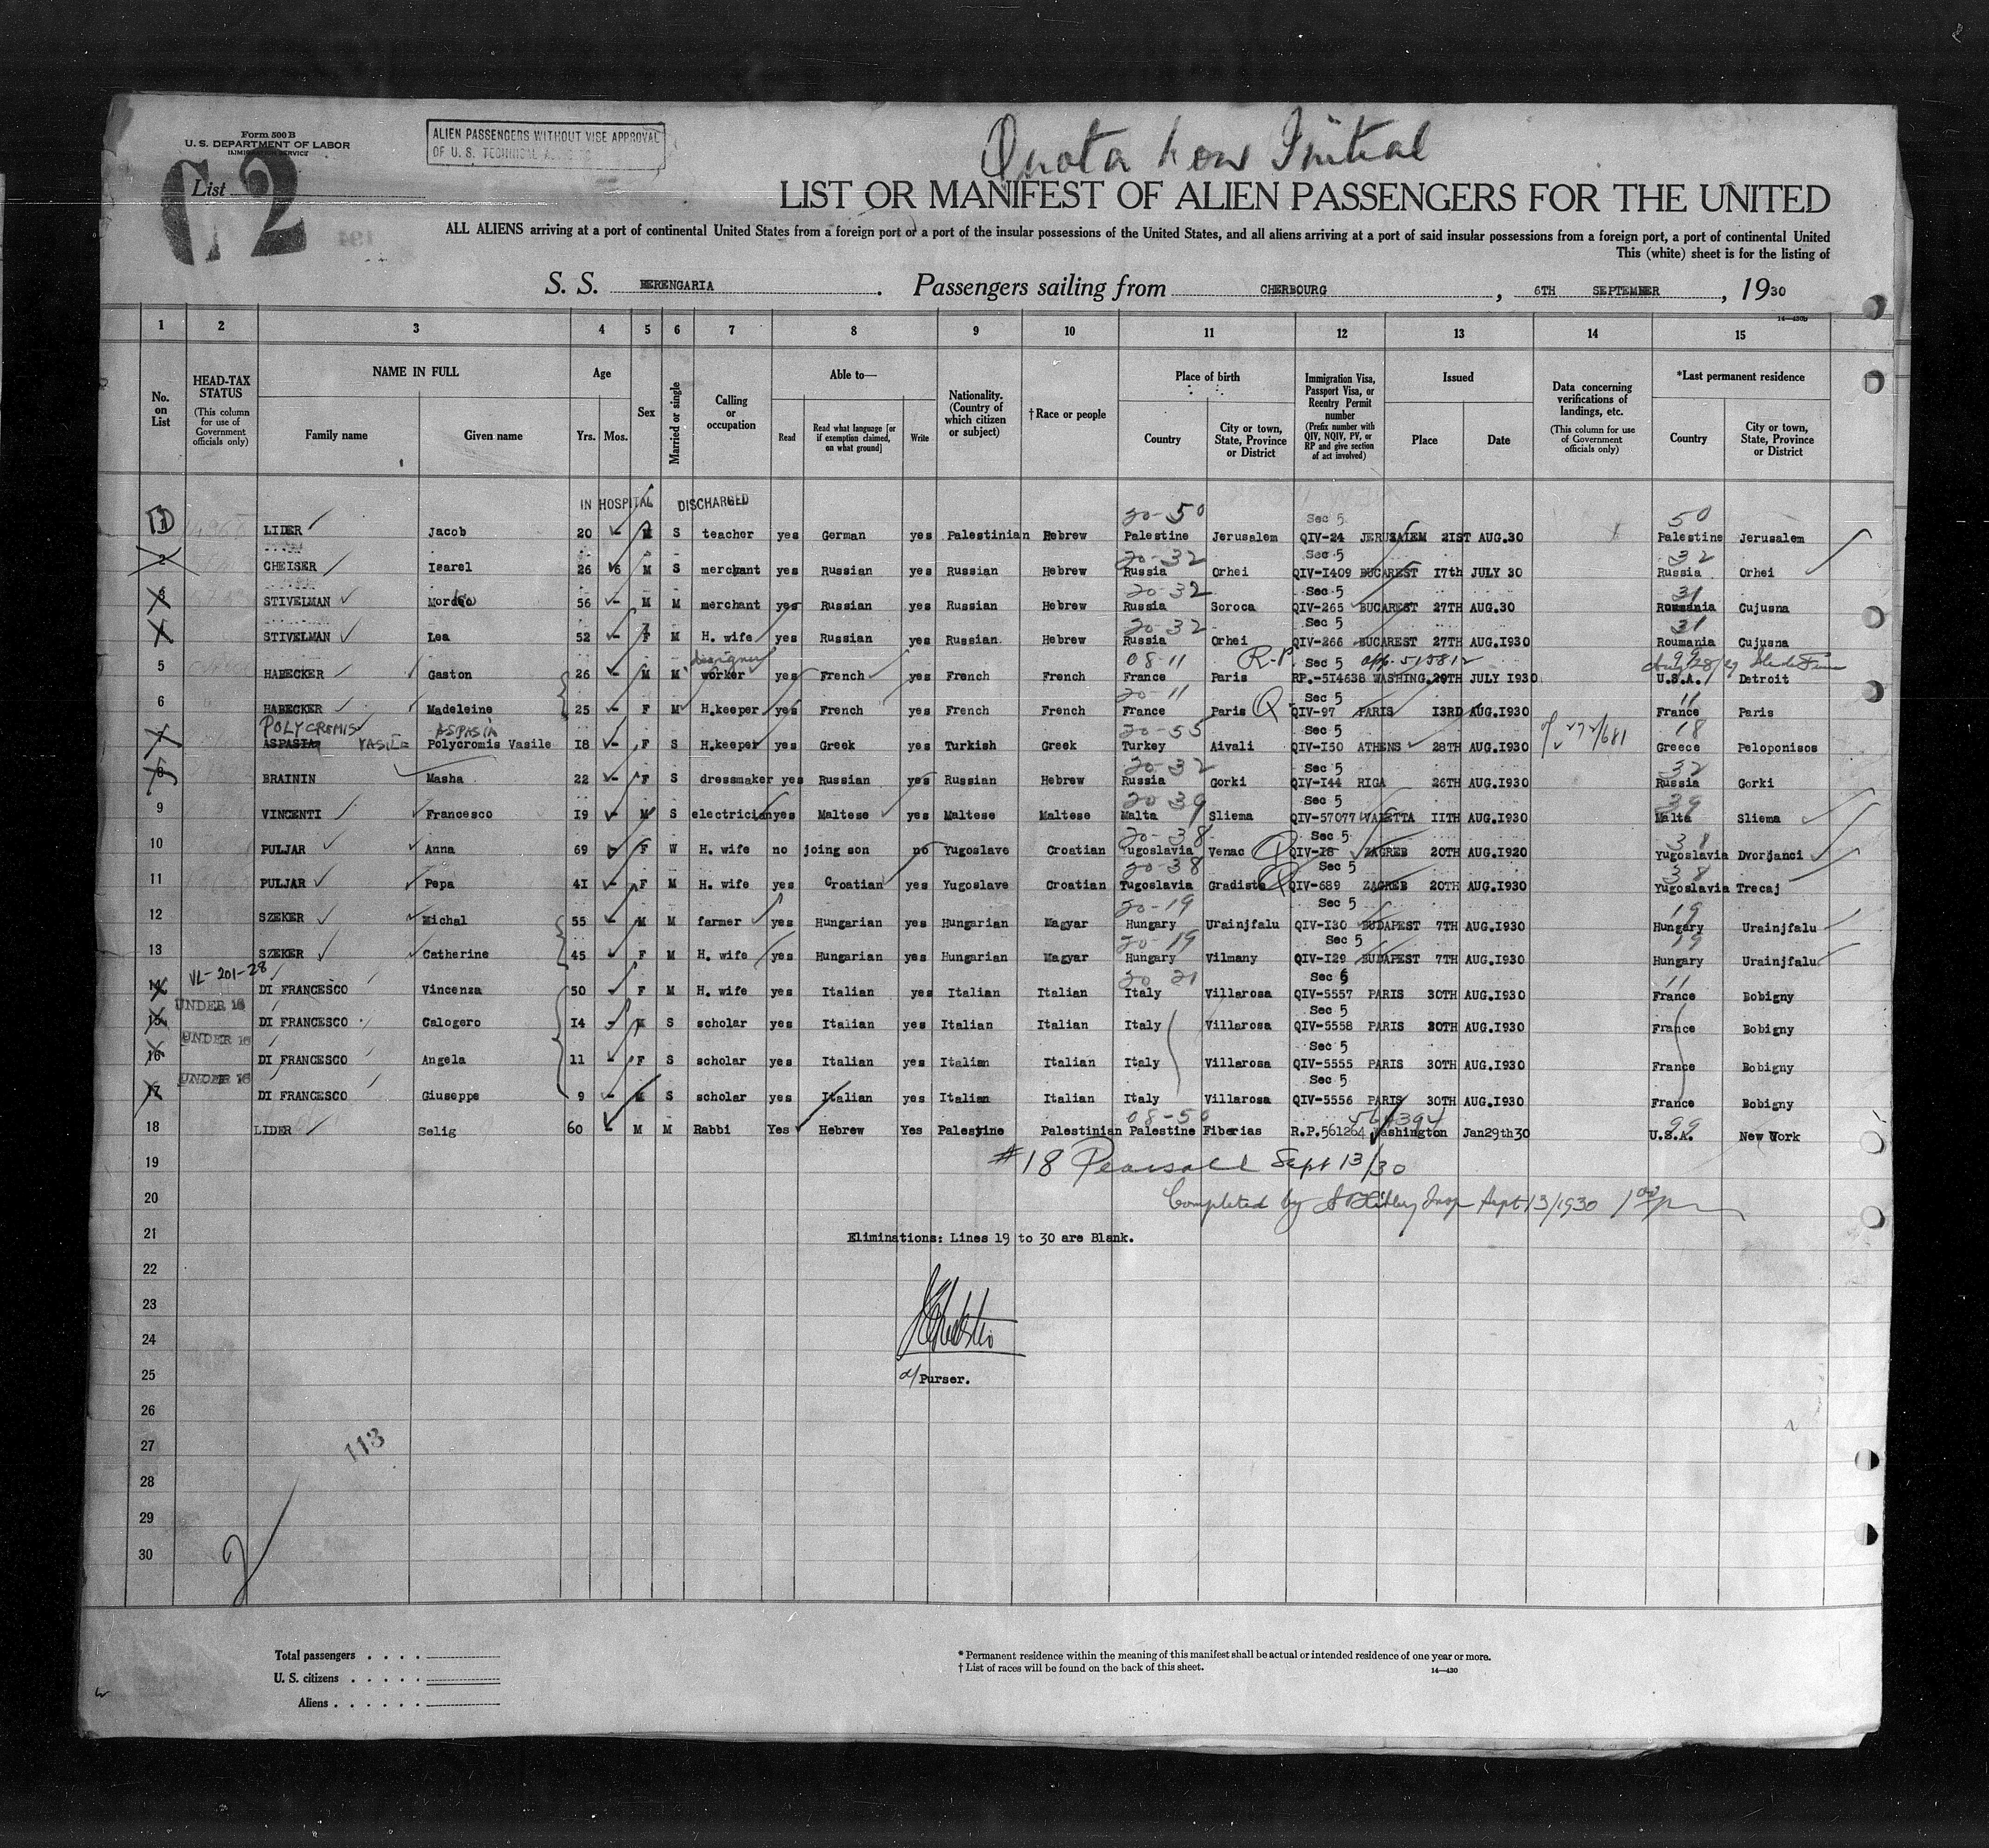 Form 500 B
U. S. DEPARTMENT OF LABOR
IMMIGRATION SERVICE
ALIEN PASSENGERS WITHOUT VISE APPROVAL
OF U. S. TECHNICAL
List 2
Quota Initial
LIST OR MANIFEST OF ALIEN PASSENGERS FOR THE UNITED
ALL ALIENS arriving at a port of continental United States from a foreign port or a port of the insular possessions of the United States, and all aliens arriving at a port of said insular possessions from a foreign port, a port of continental United
This (white) sheet is for the listing of
S. S. BERENGARIA. Passengers sailing from CHERBOURG, 6TH SEPTEMBER, 1930
14—430b
1 2 3 4 5 6 7 8 9 10 11 12 13 14 15
No. on List
HEAD-TAX STATUS (This column for use of Government officials only)
NAME IN FULL
Family name
Given name
Age
Yrs. Mos.
Sex
Married or single
Calling or occupation
Able to—
Read
Read what language [or if exemption claimed, on what ground]
Write
Nationality. (Country of which citizen or subject)
†Race or people
Place of birth
Country
City or town, State, Province or District
Immigration Visa, Passport Visa, or Reentry Permit number (Prefix number with QIV, NQIV, PV, or RP and give section of act involved)
Issued
Place
Date
Data concerning verifications of landings, etc. (This column for use of Government officials only)
*Last permanent residence
Country
City or town, State, Province or District
IN HOSPITAL DISCHARGED
20-50 Sec 5 50
1 LIDER Jacob 20 - M S teacher yes German yes Palestinian Hebrew Palestine Jerusalem QIV-24 JERUSALEM 21ST AUG.30 Palestine Jerusalem
20-32 Sec 5 32
2 CHEISER Isarel 26 6 M S merchant yes Russian yes Russian Hebrew Russia Orhei QIV-I409 BUCAREST I7th JULY 30 Russia Orhei
20-32 Sec 5 31
3 STIVELMAN 56 - M M merchant yes Russian yes Russian Hebrew Russia Soroca QIV-265 BUCAREST 27TH AUG.30 Roumania Cujusna
20-32 Sec 5 31
4 STIVELMAN Lea 52 - F M H. wife yes Russian yes Russian. Hebrew Russia Orhei QIV-266 BUCAREST 27TH AUG.I930 Roumania Cujusna
designer 08-11 R-P Sec 5 app. 515812 99
5 HABECKER Gaston 26 - M M worker yes French yes French French France Paris RP.-5I4638 WASHING. 29TH JULY I930 U.S.A. Detroit
20-11 Sec 5 11
6 HABECKER Madeleine 25 - F M H.keeper yes French yes French French France Paris Q QIV-97 PARIS I3RD AUG.I930 France Paris
POLYCROMIS ASPASIA 20-55 Sec 5 18
7 ASPASIA VASILE Polycromis Vasile I8 - F S H.keeper yes Greek yes Turkish Greek Turkey Aivali QIV-I50 ATHENS 28TH AUG.I930 Greece Peloponisos
20-32 Sec 5 32
8 BRAININ Masha 22 - F S dressmaker yes Russian yes Russian Hebrew Russia Gorki QIV-I44 RIGA 26TH AUG.I930 Russia Gorki
20 39 Sec 5 39
9 VINCENTI Francesco I9 - M S electrician yes Maltese yes Maltese Maltese Malta Sliema QIV-57077 VALETTA IITH AUG.I930 Malta Sliema
20-38 Sec 5 38
10 PULJAR Anna 69 - F W H. wife no joing son no Yugoslave Croatian Yugoslavia Venac Q QIV-I8 ZAGREB 20TH AUG.I920 Yugoslavia Dvorjanci
20-38 Sec 5 38
11 PULJAR Pepa 4I - F M H. wife yes Croatian yes Yugoslave Croatian Yugoslavia Gradiste Q QIV-689 ZAGREB 20TH AUG.I930 Yugoslavia Trecaj
20-19 Sec 5 19
12 SZEKER Michal 55 - M M farmer yes Hungarian yes Hungarian Magyar Hungary Urainjfalu QIV-I30 BUDAPEST 7TH AUG.I930 Hungary Urainjfalu
20-19 Sec 5 19
13 SZEKER Catherine 45 - F M H. wife yes Hungarian yes Hungarian Magyar Hungary Vilmany QIV-I29 BUDAPEST 7TH AUG.I930 Hungary Urainjfalu
VL-201-28 20 21 Sec 6 11
14 DI FRANCESCO Vincenza 50 - F M H. wife yes Italian yes Italian Italian Italy Villarosa QIV-5557 PARIS 30TH AUG.I930 France Bobigny
UNDER 16 Sec 5
15 DI FRANCESCO Calogero I4 - M S scholar yes Italian yes Italian Italian Italy Villarosa QIV-5558 PARIS 30TH AUG.I930 France Bobigny
UNDER 16 Sec 5
16 DI FRANCESCO Angela 11 - F S scholar yes Italian yes Italian Italian Italy Villarosa QIV-5555 PARIS 30TH AUG.I930 France Bobigny
UNDER 16 Sec 5
17 DI FRANCESCO Giuseppe 9 - M S scholar yes Italian yes Italian Italian Italy Villarosa QIV-5556 PARIS 30TH AUG.I930 France Bobigny
08-50 99
18 LIDER Selig 60 - M M Rabbi Yes Hebrew Yes Palestine Palestinian Palestine Fiberias R.P.561264 Washington Jan29th30 U.S.A. New York
19 #18 Pearsall Sept 13/30
20 Completed by Insp Sept 13/1930
21 Eliminations: Lines 19 to 30 are Blank.
22
23
24
25 Purser.
26
27 113
28
29
30
Total passengers . . . .
U. S. citizens . . . . .
Aliens . . . . . .
* Permanent residence within the meaning of this manifest shall be actual or intended residence of one year or more.
† List of races will be found on the back of this sheet.
14—430